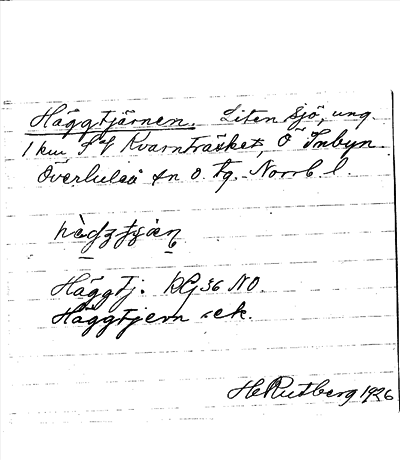 Häggtjärnen. Liten sjö, ung.
1 km S of Kvarnträsket, Ö Inbyn
Överluleå sn o. tg. Norrb. l.
Häggtj. KG 36 NO.
Häggtjern -ek.
H Rutberg 1926